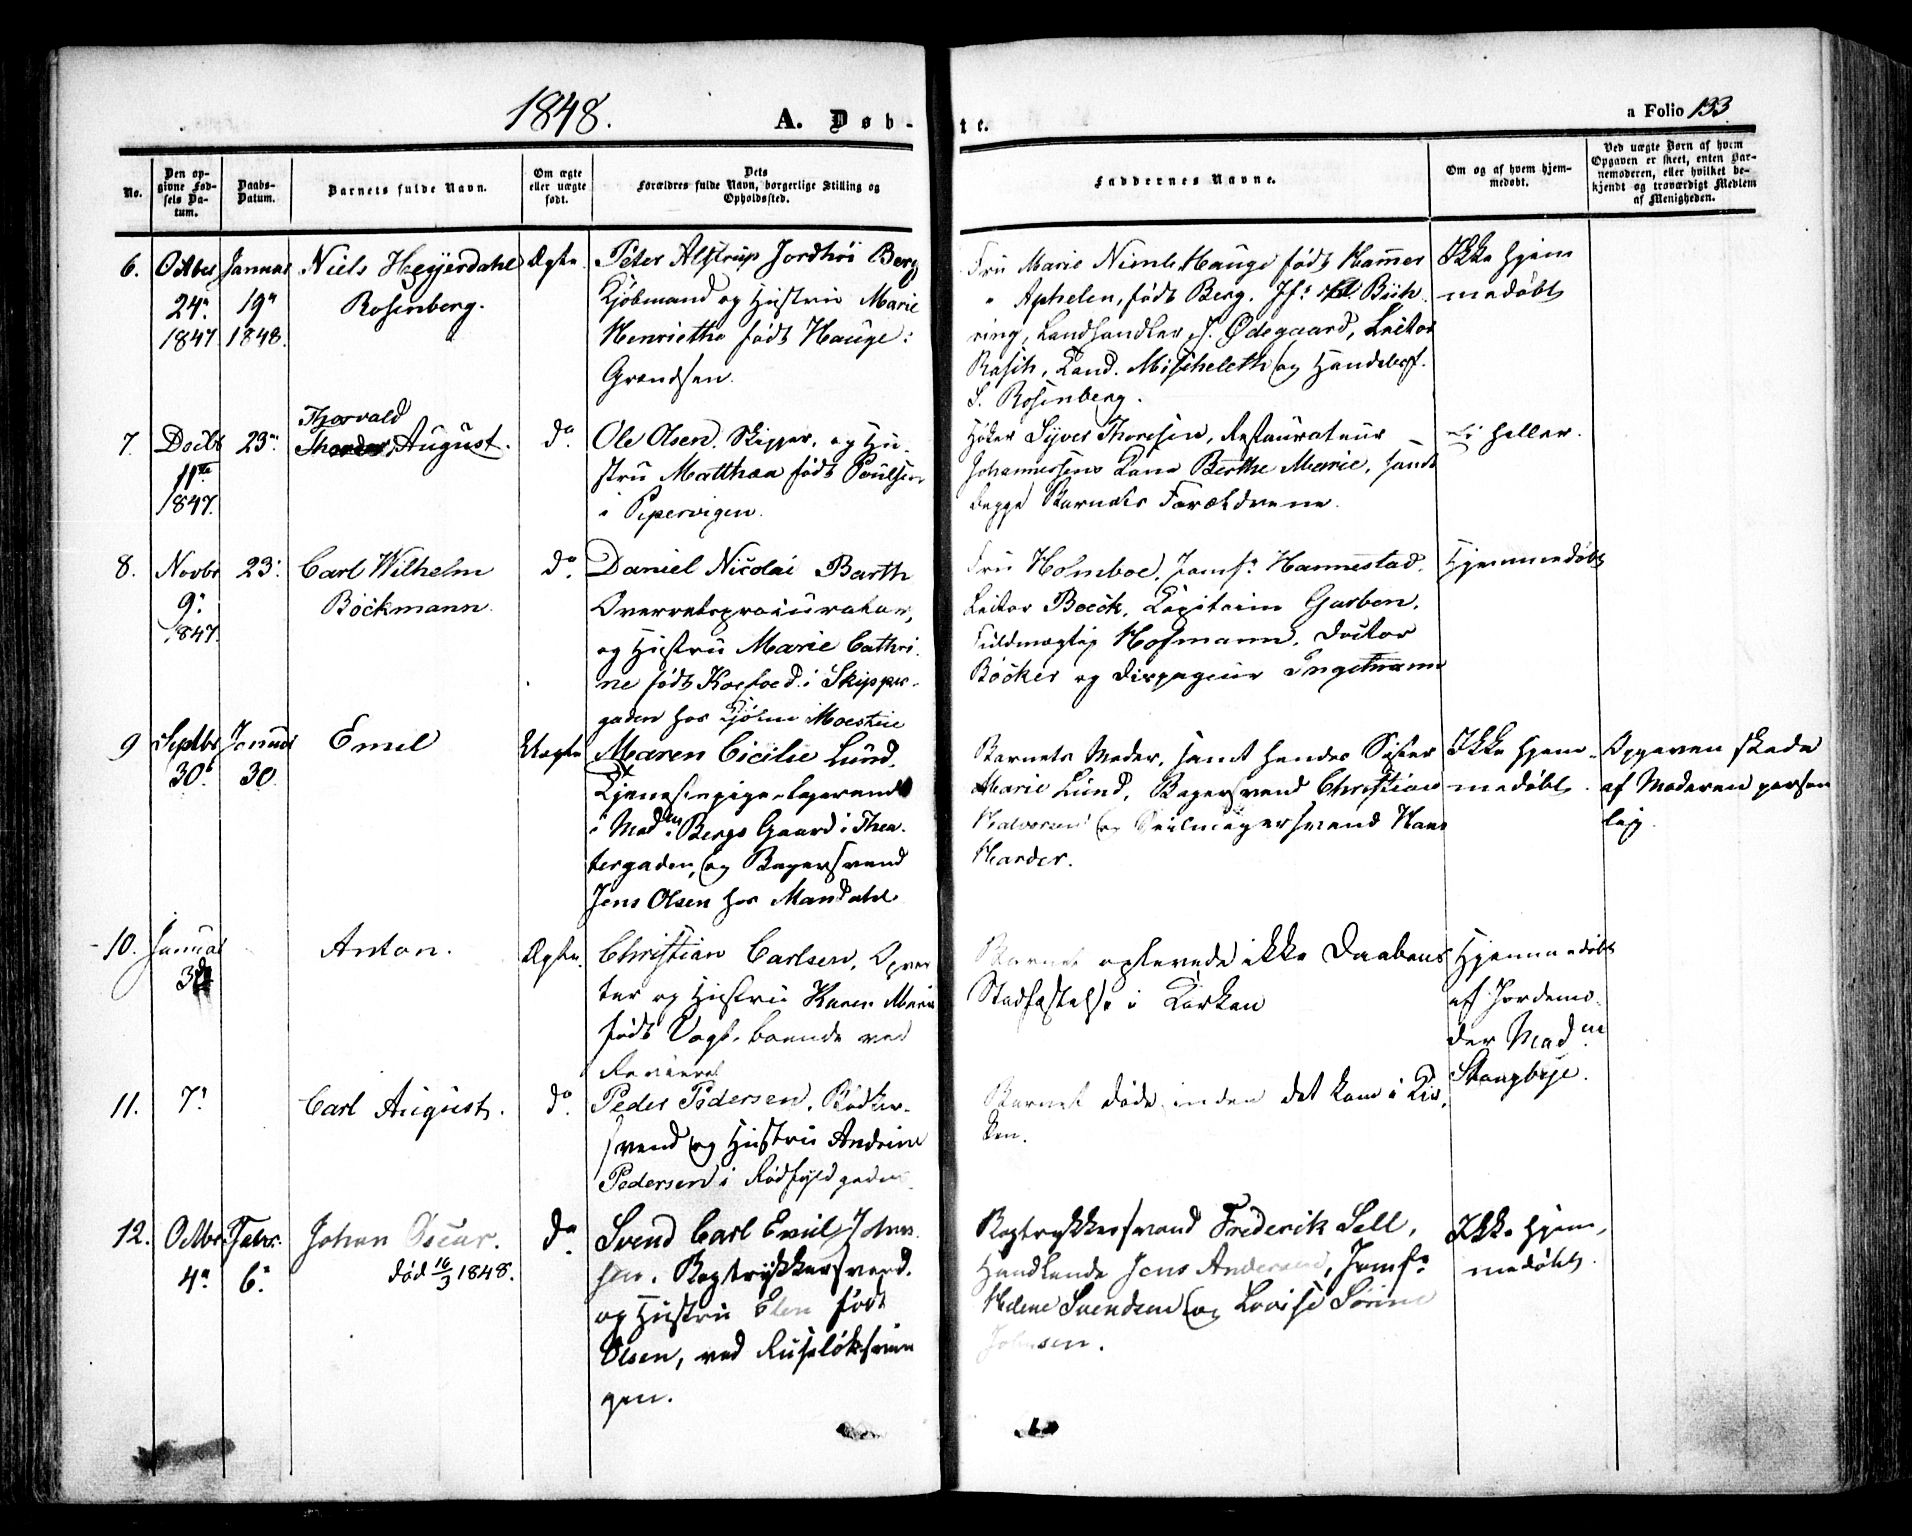 1848.
A. Døb-
te.
a Folio 133
No.
Den op-
givne Fød-
sels Da-
tum.
Daabs-
Datum.
Barnets fulde Navn.
Om ægte
eller uægte
født.
Dets
Forældres fulde Navn, borgerlige Stilling og
Opholdssted.
Faddernes Navne.
Om og af hvem hjem-
medøbt.
Ved uægte Børn af hvem
Opgaven er skeet, enten Bar-
nemoderen, eller hvilket be-
kjendt og troværdigt Medlem
af Menigheden.
6.
Octbr
24de
1847
Januar
19de
1848.
Niels Heyerdahl
Rosenberg.
Ægte.
Peter Alstrup Jordhöi Berg
Kjöbmand og Hustru Marie
Henriethe født Hauge:
Grændsen.
Fru Marie Hauge født Hammer
" Aphelen, født Berg. Jf:
ring, Landhandler Ødegaard, Lector
Rasch, Cand. Mischeleth og Handelsf.
S. Rosenberg.
Ikke hjem
medøbt
7.
Decbr
11te
1847.
23de
Thorvald
August.
do
Ole Olsen. Skipper, og Hu-
stru Matthea født Poulsen
i Pipervigen.
Høker Syver Thoresen, Restaurateur
Johannessens Kone Berthe Marie, samt
begge Barnets Forældrene.
Ei heller.
8.
Novbr
9de
1847
23.
Carl Wilhelm
Böckmann.
do.
Daniel Nicolai Barth
Overretsprocurator,
og Hustru Marie Cathri-
ne født Koefoed i Skipper-
gaden hos Moestue
Fru Holmboe. Jomfr Hannestad.
Lector Boeck. Capitain Garben.
Fuldmægtig Hofmann. Doctor
Böcker og Dispageur Engelmann
Hjemmedøbt
9
Septbr
30te
Januar
30.
Emil
Uægte
Maren Cicilie Lund.
Tjenestepige logerende
i Madm Bergs Gaard i Thea-
tergaden, og Bagersvend
Jens Olsen hos Mandahl
Barnets Moder, samt hendes Sister
Marie Lund, Bagersvend Christian
Halvorsen og Seilmagersvend Hans
Harder.
Ikke hjem-
medøbt.
Opgaven skede
af Moderen person
lig.
10.
Januar
Anton.
Ægte.
Christian Carlsen,
og Hustru Karen Maria
født Vogt, boende ved
Revieret
Barnet oplevede ikke Daabens
Stadfæstelse i Kirken
Hjemmedøbt
af Jordemo-
der Madm
Stangbye.
11.
7de
Carl August.
do.
Peder Pedersen, Bødker-
svend og Hustru Andrine
Pedersen i Rødfyldgaden.
Barnet døde inden det kom i Kir-
ken.
12.
Octbr
4de
Febr.
6te
Johan Oscar.
død 16/3 1848.
do.
Svend Carl Emil John-
sen, Bogtrykkersvend.
og Hustru Elen født
Olsen, ved Ruseløkvein
gen.
Bogtrykkersvend Frederik Sell,
Handlende Jens Andersen, Jomfr
Helene Svendsen og Lovise Sørine
Johnsen.
Ikke hjem-
medøbt.